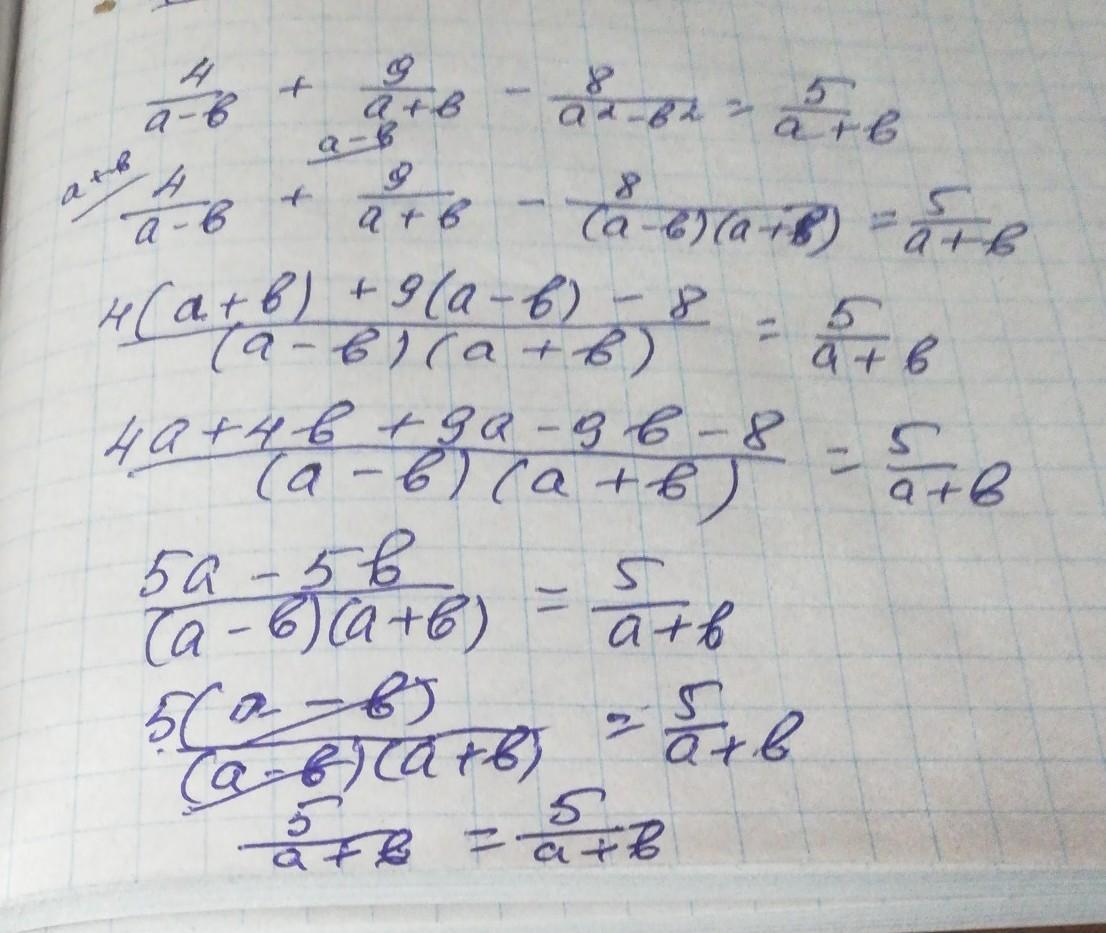 4/(a-в) + 9/(a+в) - 8/(a²-в²) = 5/(a+в)
a+в/ 4/(a-в) + a-в/ 9/(a+в) - 8/((a-в)(a+в)) = 5/(a+в)
(4(a+в) + 9(a-в) - 8)/((a-в)(a+в)) = 5/(a+в)
(4a+4в+9a-9в-8)/((a-в)(a+в)) = 5/(a+в)
(5a-5в)/((a-в)(a+в)) = 5/(a+в)
5(a-в)/((a-в)(a+в)) = 5/(a+в)
5/(a+в) = 5/(a+в)